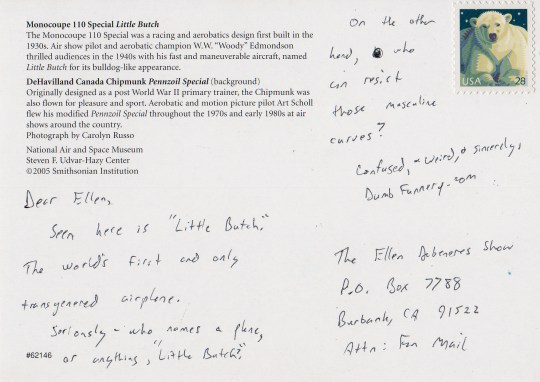 Monocoupe 110 Special Little Butch
The Monocoupe 110 Special was a racing and aerobatics design first built in the
1930s. Air show pilot and aerobatic champion W.W. "Woody" Edmondson
thrilled audiences in the 1940s with his fast and maneuverable aircraft, named
Little Butch for its bulldog-like appearance.
DeHavilland Canada Chipmunk Pennzoil Special (background)
Originally designed as a post World War II primary trainer, the Chipmunk was
also flown for pleasure and sport. Aerobatic and motion picture pilot Art Scholl
flew his modified Pennzoil Special throughout the 1970s and early 1980s at air
shows around the country.
Photograph by Carolyn Russo
National Air and Space Museum
Steven F. Udvar-Hazy Center
©2005 Smithsonian Institution
Dear Ellen,
Seen here is "Little Butch."
The world's first and only
transgenered airplane.
Seriously - who names a plane,
or anything, "Little Butch?"
#62146
On the other
hand, who
can resist
those masculine
curves?
Confused, + weird, + sincerely,
DumbFunnery.com
USA 28
The Ellen Degeneres Show
P.O. Box 7788
Burbank, CA 91522
Attn: Fan Mail